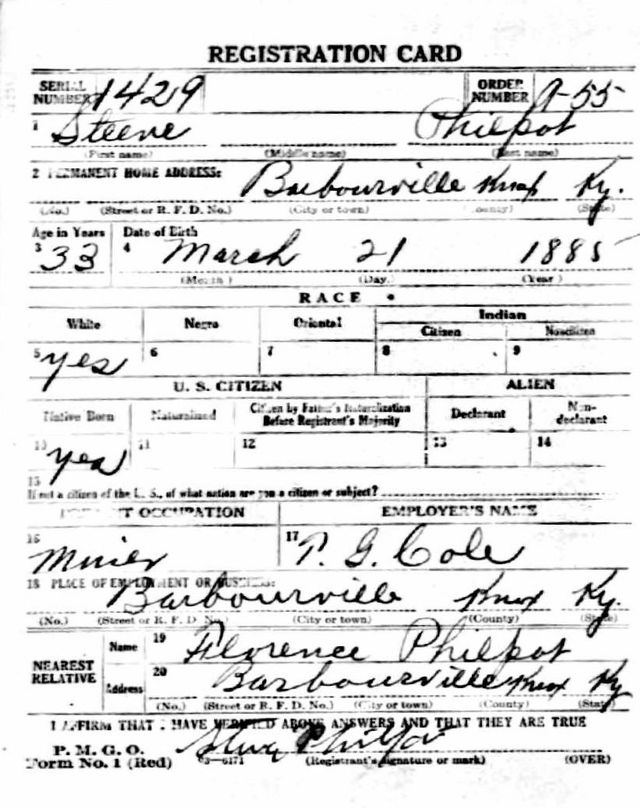 REGISTRATION CARD
SERIAL NUMBER 1429 ORDER NUMBER A-55
1 Steeve Philpot
(First name) (Middle name) (Last name)
2 PERMANENT HOME ADDRESS: Barbourville Knox Ky.
(No.) (Street or R. F. D. No.) (City or town) (County) (State)
Age in Years Date of Birth
3 33 4 March 21 1885
(Month) (Day) (Year)
RACE
White Negro Oriental Indian
Citizen Noncitizen
5 yes 6 7 8 9
U. S. CITIZEN ALIEN
Native Born Naturalized Citizen by Father's Naturalization Before Registrant's Majority Declarant Non-declarant
10 yes 11 12 13 14
15
If not a citizen of the U. S., of what nation are you a citizen or subject?
PRESENT OCCUPATION EMPLOYER'S NAME
16 Miner 17 T. G. Cole
18 PLACE OF EMPLOYMENT OR BUSINESS:
Barbourville Knox Ky.
(No.) (Street or R. F. D. No.) (City or town) (County) (State)
NEAREST RELATIVE Name 19 Florence Philpot
Address 20 Barbourville Knox Ky
(No.) (Street or R. F. D. No.) (City or town) (County) (State)
I AFFIRM THAT I HAVE VERIFIED ABOVE ANSWERS AND THAT THEY ARE TRUE
P. M. G. O.
Form No. 1 (Red) 03-6171 (Registrant's signature or mark) (OVER)